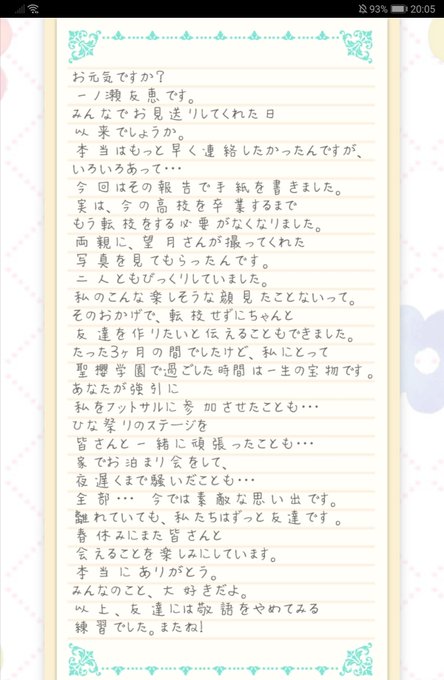 93% 20:05
お元気ですか?
一ノ瀬友恵です。
みんなでお見送りしてくれた日
以来でしょうか。
本当はもっと早く連絡したかったんですが、
いろいろあって・・・
今回はその報告で手紙を書きました。
実は、今の高校を卒業するまで
もう転校をする必要がなくなりました。
両親に、望月さんが撮ってくれた
写真を見てもらったんです。
二人ともびっくりしていました。
私のこんな楽しそうな顔見たことないって。
そのおかげで、転校せずにちゃんと
友達を作りたいと伝えることもできました。
たった3ヶ月の間でしたけど、私にとって
聖櫻学園で過ごした時間は一生の宝物です。
あなたが強引に
私をフットサルに参加させたことも・・・
ひな祭りのステージを
皆さんと一緒に頑張ったことも・・・
家でお泊まり会をして、
夜遅くまで騒いだことも・・・
全部・・・ 今では素敵な思い出です。
離れていても、私たちはずっと友達です。
春休みにまた皆さんと
会えることを楽しみにしています。
本当にありがとう。
みんなのこと、大好きだよ。
以上、友達には敬語をやめてみる
練習でした。またね!